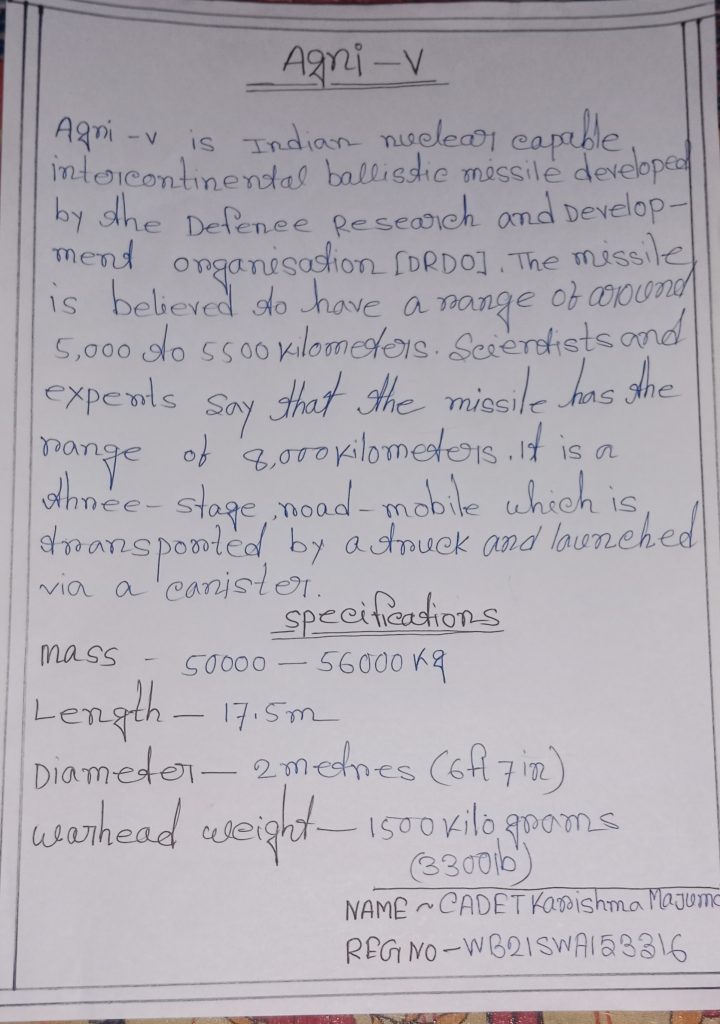 Agni - V
Agni - v is Indian nuclear capable
intercontinental ballistic missile developed
by the Defence Research and Develop-
ment organisation [DRDO]. The missile
is believed to have a range of around
5,000 to 5500 kilometers. Scientists and
experts say that the missile has the
range of 8,000 kilometers. It is a
three - stage, road - mobile which is
transported by a truck and launched
via a canister.
specifications
mass - 50000 - 56000 kg
Length - 17.5m
Diameter - 2 metres (6ft 7 in)
warhead weight - 1500 kilo grams
(3300lb)
NAME ~ CADET Karishma Majum
REG NO - WB21SWA153316